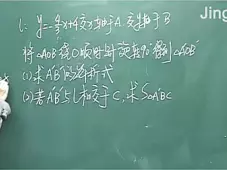 Jing
1. y=-4/3x+4交x轴于A 交y轴于B
将△AOB绕O顺时针旋转90°得到△A'OB'
(1)求A'B'的解析式
(2)若A'B'与l相交于C,求S△A'BC